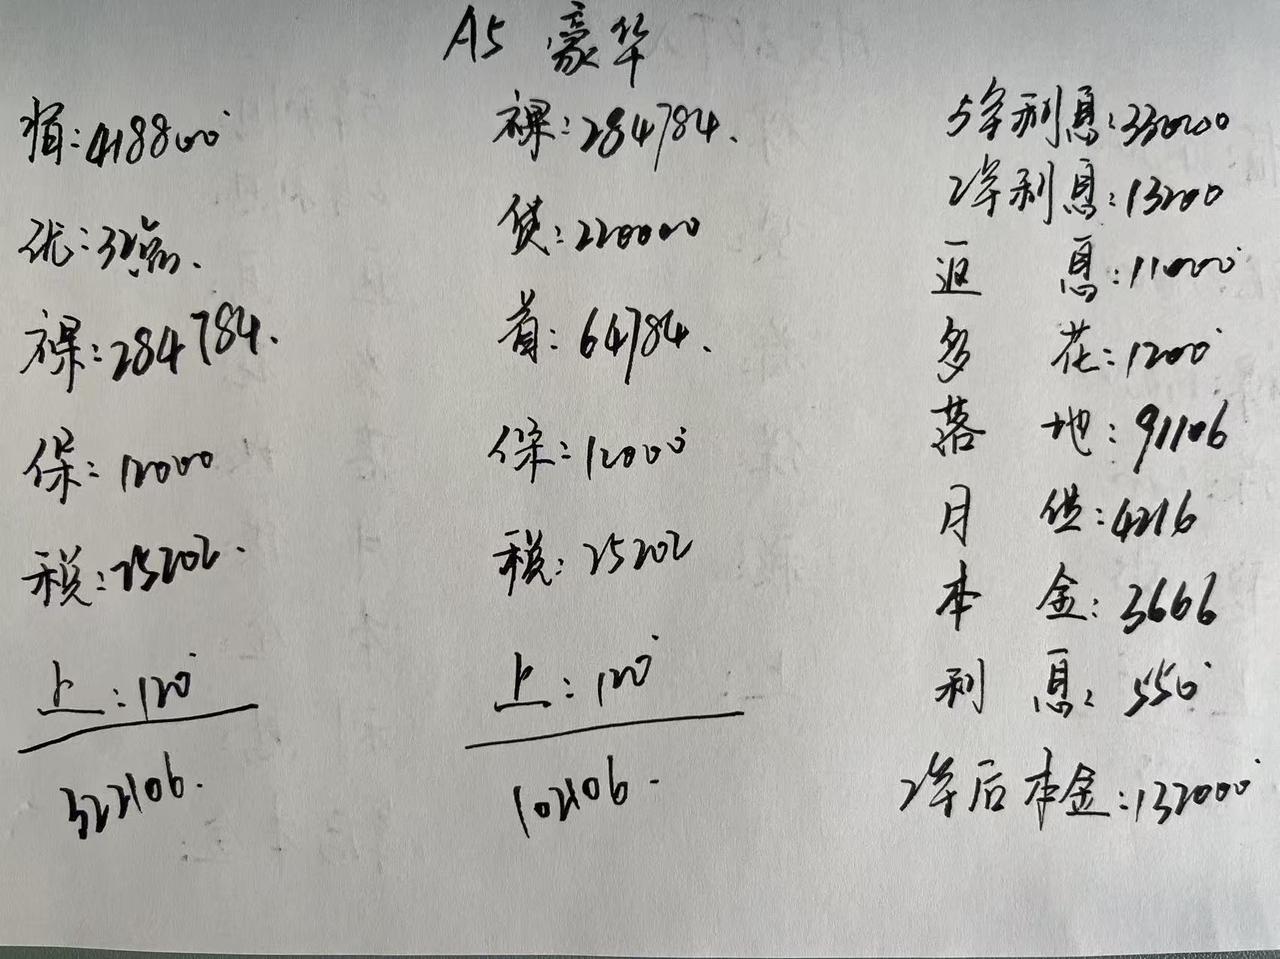 A5 豪华
指:418800
优:32点
裸:284784.
保:12000
税:25202.
上:120
322106.
裸:284784.
贷:220000
首:64784.
保:12000
税:25202
上:120
102106.
5年利息:33000
2年利息:13200
返息:11000
多花:1200
落地:91106
月供:4216
本金:3666
利息:550
2年后本金:132000